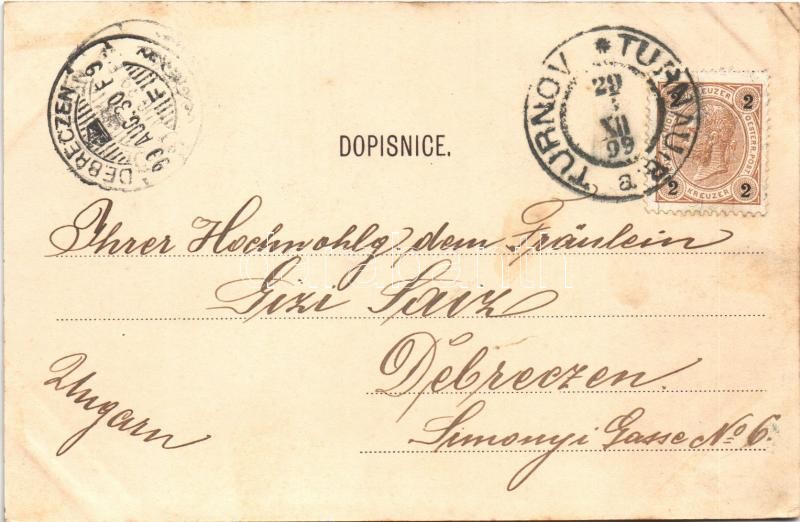 DEBRECZEN
99 AUG. 30
TURNOV * TURNAU
29
99
2 KREUZER 2
OESTERR. POST.
2 KREUZER 2
DOPISNICE.
Ihrer Hochwohlg dem Fräulein
Gizi
Debreczen.
Ungarn
Simonyi Gasse No 6.